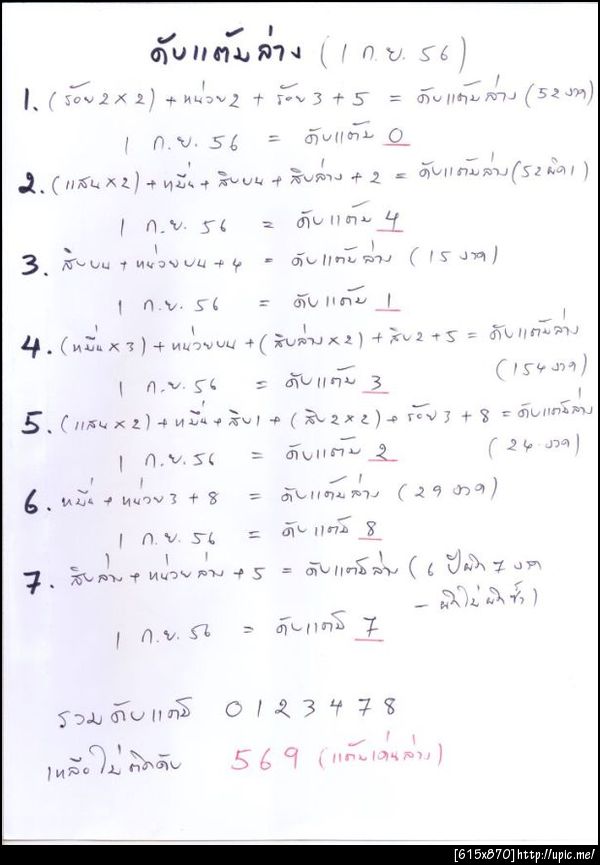 ดับแต้มล่าง (1 ก.ย. 56)
1. (ร้อย2×2) + หน่วย2 + ร้อย3 + 5 = ดับแต้มล่าง (52 งวด)
1 ก.ย. 56 = ดับแต้ม 0
2. (แสน×2) + หมื่น + สิบบน + สิบล่าง + 2 = ดับแต้มล่าง (52 ผิด 1)
1 ก.ย. 56 = ดับแต้ม 4
3. สิบบน + หน่วยบน + 4 = ดับแต้มล่าง (15 งวด)
1 ก.ย. 56 = ดับแต้ม 1
4. (หมื่น×3) + หน่วยบน + (สิบล่าง×2) + สิบ2 + 5 = ดับแต้มล่าง
(154 งวด)
1 ก.ย. 56 = ดับแต้ม 3
5. (แสน×2) + หมื่น + สิบ1 + (สิบ2×2) + ร้อย3 + 8 = ดับแต้มล่าง
(24 งวด)
1 ก.ย. 56 = ดับแต้ม 2
6. หมื่น + หน่วย3 + 8 = ดับแต้มล่าง (29 งวด)
1 ก.ย. 56 = ดับแต้ม 8
7. สิบล่าง + หน่วยล่าง + 5 = ดับแต้มล่าง (6 ปีผิด 7 งวด
- ผิดไม่ผิดซ้ำ)
1 ก.ย. 56 = ดับแต้ม 7
รวมดับแต้ม 0 1 2 3 4 7 8
เหลือไม่ติดดับ 5 6 9 (แต้มเด่นล่าง)
[615x870]http://upic.me/